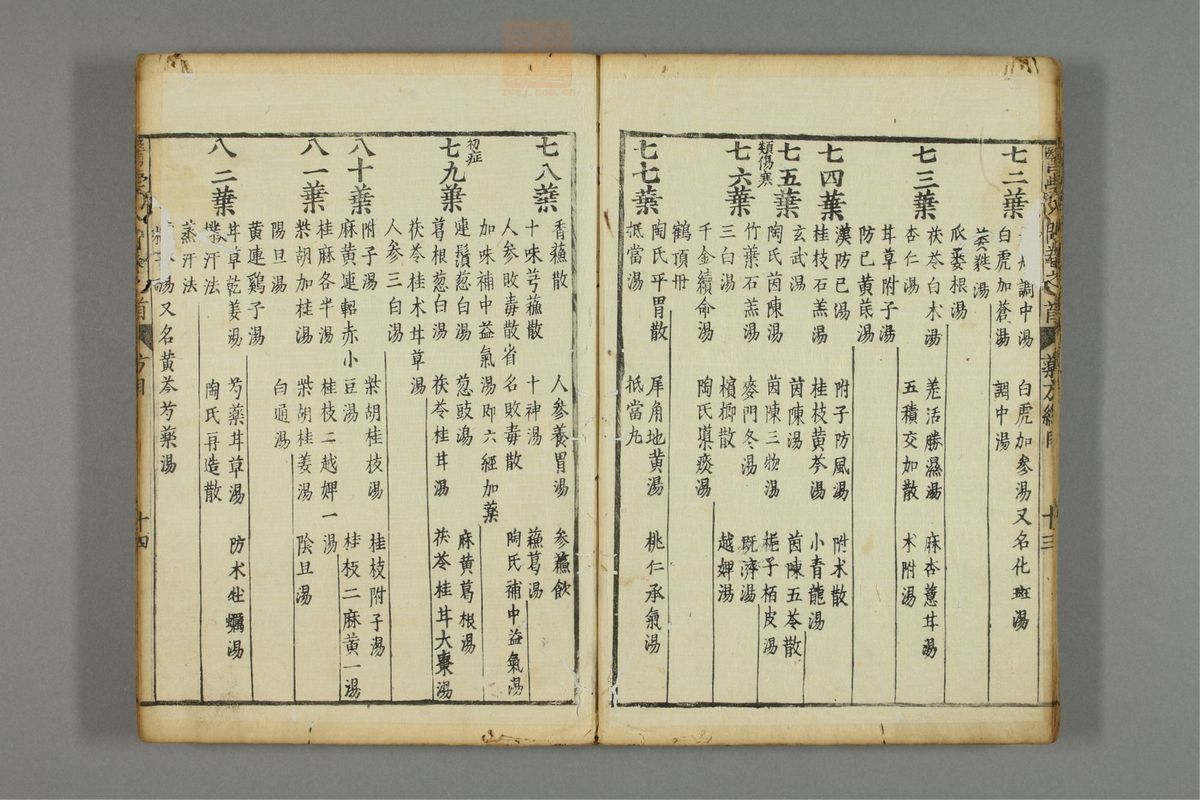 七二葉
調中湯 白虎加參湯又名化斑湯
白虎加蒼湯 調中湯
葳蕤湯
瓜蔞根湯
七三葉
茯苓白朮湯 羌活勝濕湯 麻杏薏苡湯
杏仁湯 五積交加散 朮附湯
甘草附子湯
防已黃芪湯
七四葉
漢防已湯 附子防風湯 附朮散
桂枝石羔湯 桂枝黃芩湯 小青龍湯
七五葉
玄武湯 茵陳湯 茵陳五苓散
類傷寒
陶氏茵陳湯 茵陳三物湯 梔子栢皮湯
七六葉
竹葉石羔湯 麥門冬湯 既濟湯
三白湯 檳榔散 越婢湯
千金續命湯 陶氏導痰湯
鶴頂丹
七七葉
陶氏平胃散 犀角地黃湯 桃仁承氣湯
抵當湯 抵當丸
藥方總目 十三
七八葉
香蘓散 人參養胃湯 參蘓飲
十味芎蘓散 十神湯 蘓葛湯
人參敗毒散省名敗毒散 陶氏補中益氣湯
加味補中益氣湯即六經加藥
初症
七九葉
連鬚葱白湯 葱豉湯 麻黃葛根湯
葛根葱白湯 茯苓桂甘湯 茯苓桂甘大棗湯
茯苓桂朮甘草湯
人參三白湯
八十葉
附子湯 柴胡桂枝湯 桂枝附子湯
麻黃連軺赤小豆湯 桂枝二麻黃一湯
桂麻各半湯 桂枝二越婢一湯
八一葉
柴胡加桂湯 柴胡桂姜湯 陰旦湯
陽旦湯 白通湯
黃連鷄子湯
八二葉
甘草乾姜湯 芍藥甘草湯 防朮牡蠣湯
㗖汗法 陶氏再造散
蒸汗法
湯又名黃芩芍藥湯
首 方目 十四